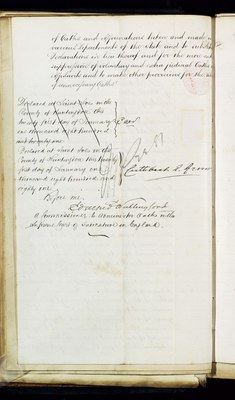 of Oaths and Affirmations taken and made in
various Departments of the State and to substitute
Declarations in lieu thereof and for the more entire
suppression of voluntary and extra judicial Oaths and
Affidavits and to make other provisions for the abolition
of unnecessary Oaths
Declared at Saint Ives in the
County of Huntingdon this
twenty first day of January
one thousand eight hundred
and eighty one
Declared at Saint Ives in the
County of Huntingdon this twenty
first day of January one
thousand eight hundred and
eighty one
Cuthbert
Before me
A Commissioner to Administer Oaths in the
Supreme Court of Judicature in England